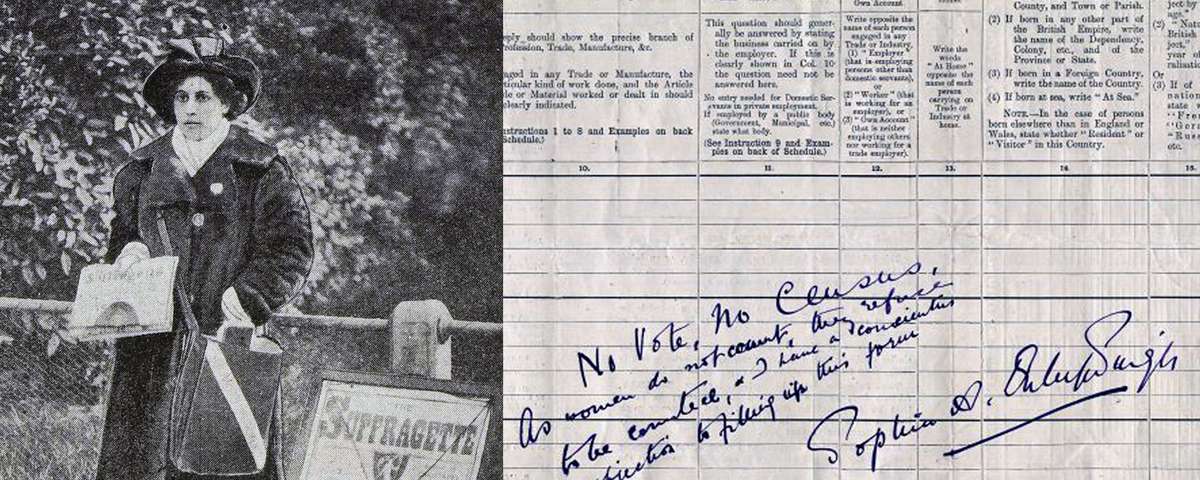 SUFFRAGETTE
THE
SUFFRAGETTE
eply should show the precise branch of
rofession, Trade, Manufacture, &c.
aged in any Trade or Manufacture, the
ticular kind of work done, and the Article
le or Material worked or dealt in should
learly indicated.
nstructions 1 to 8 and Examples on back
Schedule.)
10.
This question should gener-
ally be answered by stating
the business carried on by
the employer. If this is
clearly shown in Col. 10
the question need not be
answered here.
No entry needed for Domestic Ser-
vants in private employment.
If employed by a public body
(Government, Municipal, etc.)
state what body.
(See Instruction 9 and Exam-
ples on back of Schedule.)
11.
Own Account.
Write opposite
the name of
each person
engaged in any
Trade or Industry,
(1) "Employer"
(that is employing
persons other than
domestic servants),
or
(2) "Worker" (that
is working for an
employer), or
(3) "Own Account"
(that is neither
employing others
nor working for a
trade employer).
12.
Write the
words
"At Home"
opposite the
name of each
person
carrying on
Trade or
Industry at
home.
13.
County, and Town or Parish.
(2) If born in any other part of
the British Empire, write
the name of the Dependency,
Colony, etc., and of the
Province or State.
(3) If born in a Foreign Country,
write the name of the Country.
(4) If born at sea, write "At Sea."
NOTE.—In the case of persons
born elsewhere than in England or
Wales, state whether "Resident" or
"Visitor" in this Country.
14.
(2)
British
year of
Or
(3) If of
state
etc.
15.
No Vote, No Census.
As women do not count, they refuse
to be counted, & I have a conscientius
objection to filling up this form
Sophia A. Duleep Singh